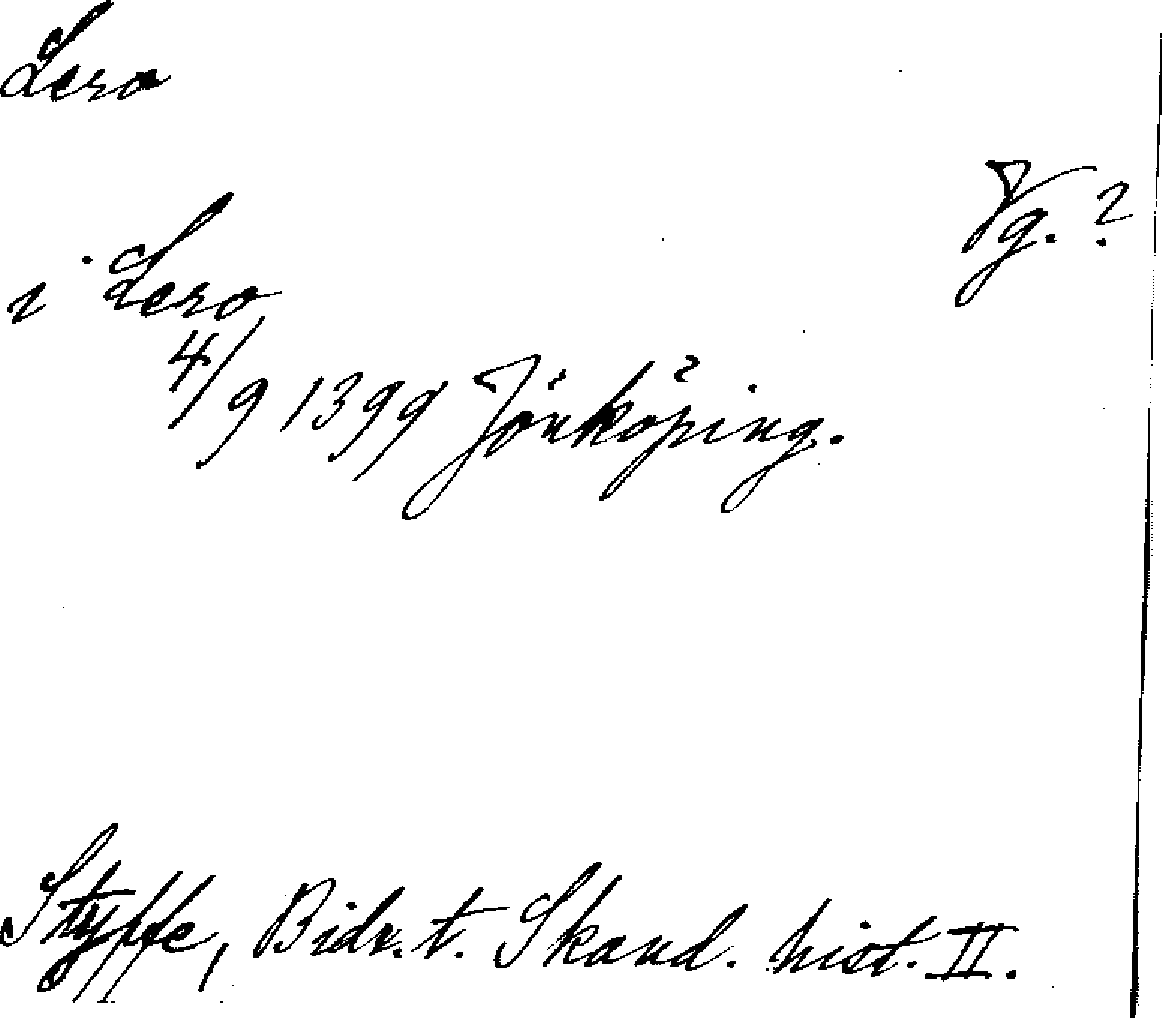 Lero
Vg. ?
i Lero
4/9 1399 Jönköping.
Styffe, Bidr. t. Skand. hist. II.